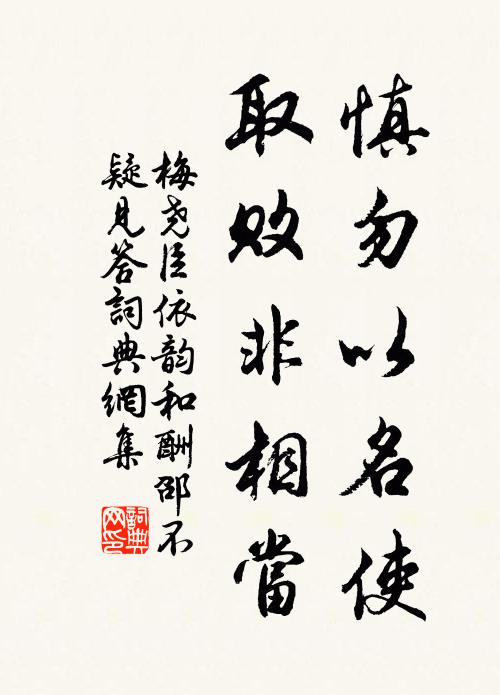 慎勿以名使
取敗非相當
梅堯臣依韵和酬邵不
疑見答詞典網集
詞典
网印